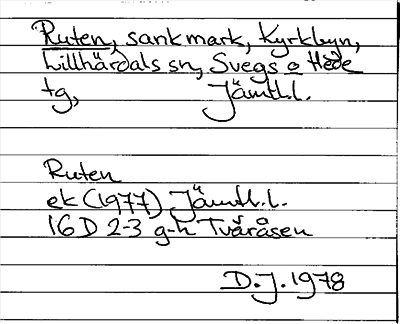 Ruten, sank mark, Kyrkbyn,
Lillhärdals sn, Svegs o Hede
tg, Jämtl.l.
Ruten
ek (1977) Jämtl.l.
16 D 2-3 g-h Tvåråsen
D.J. 1978